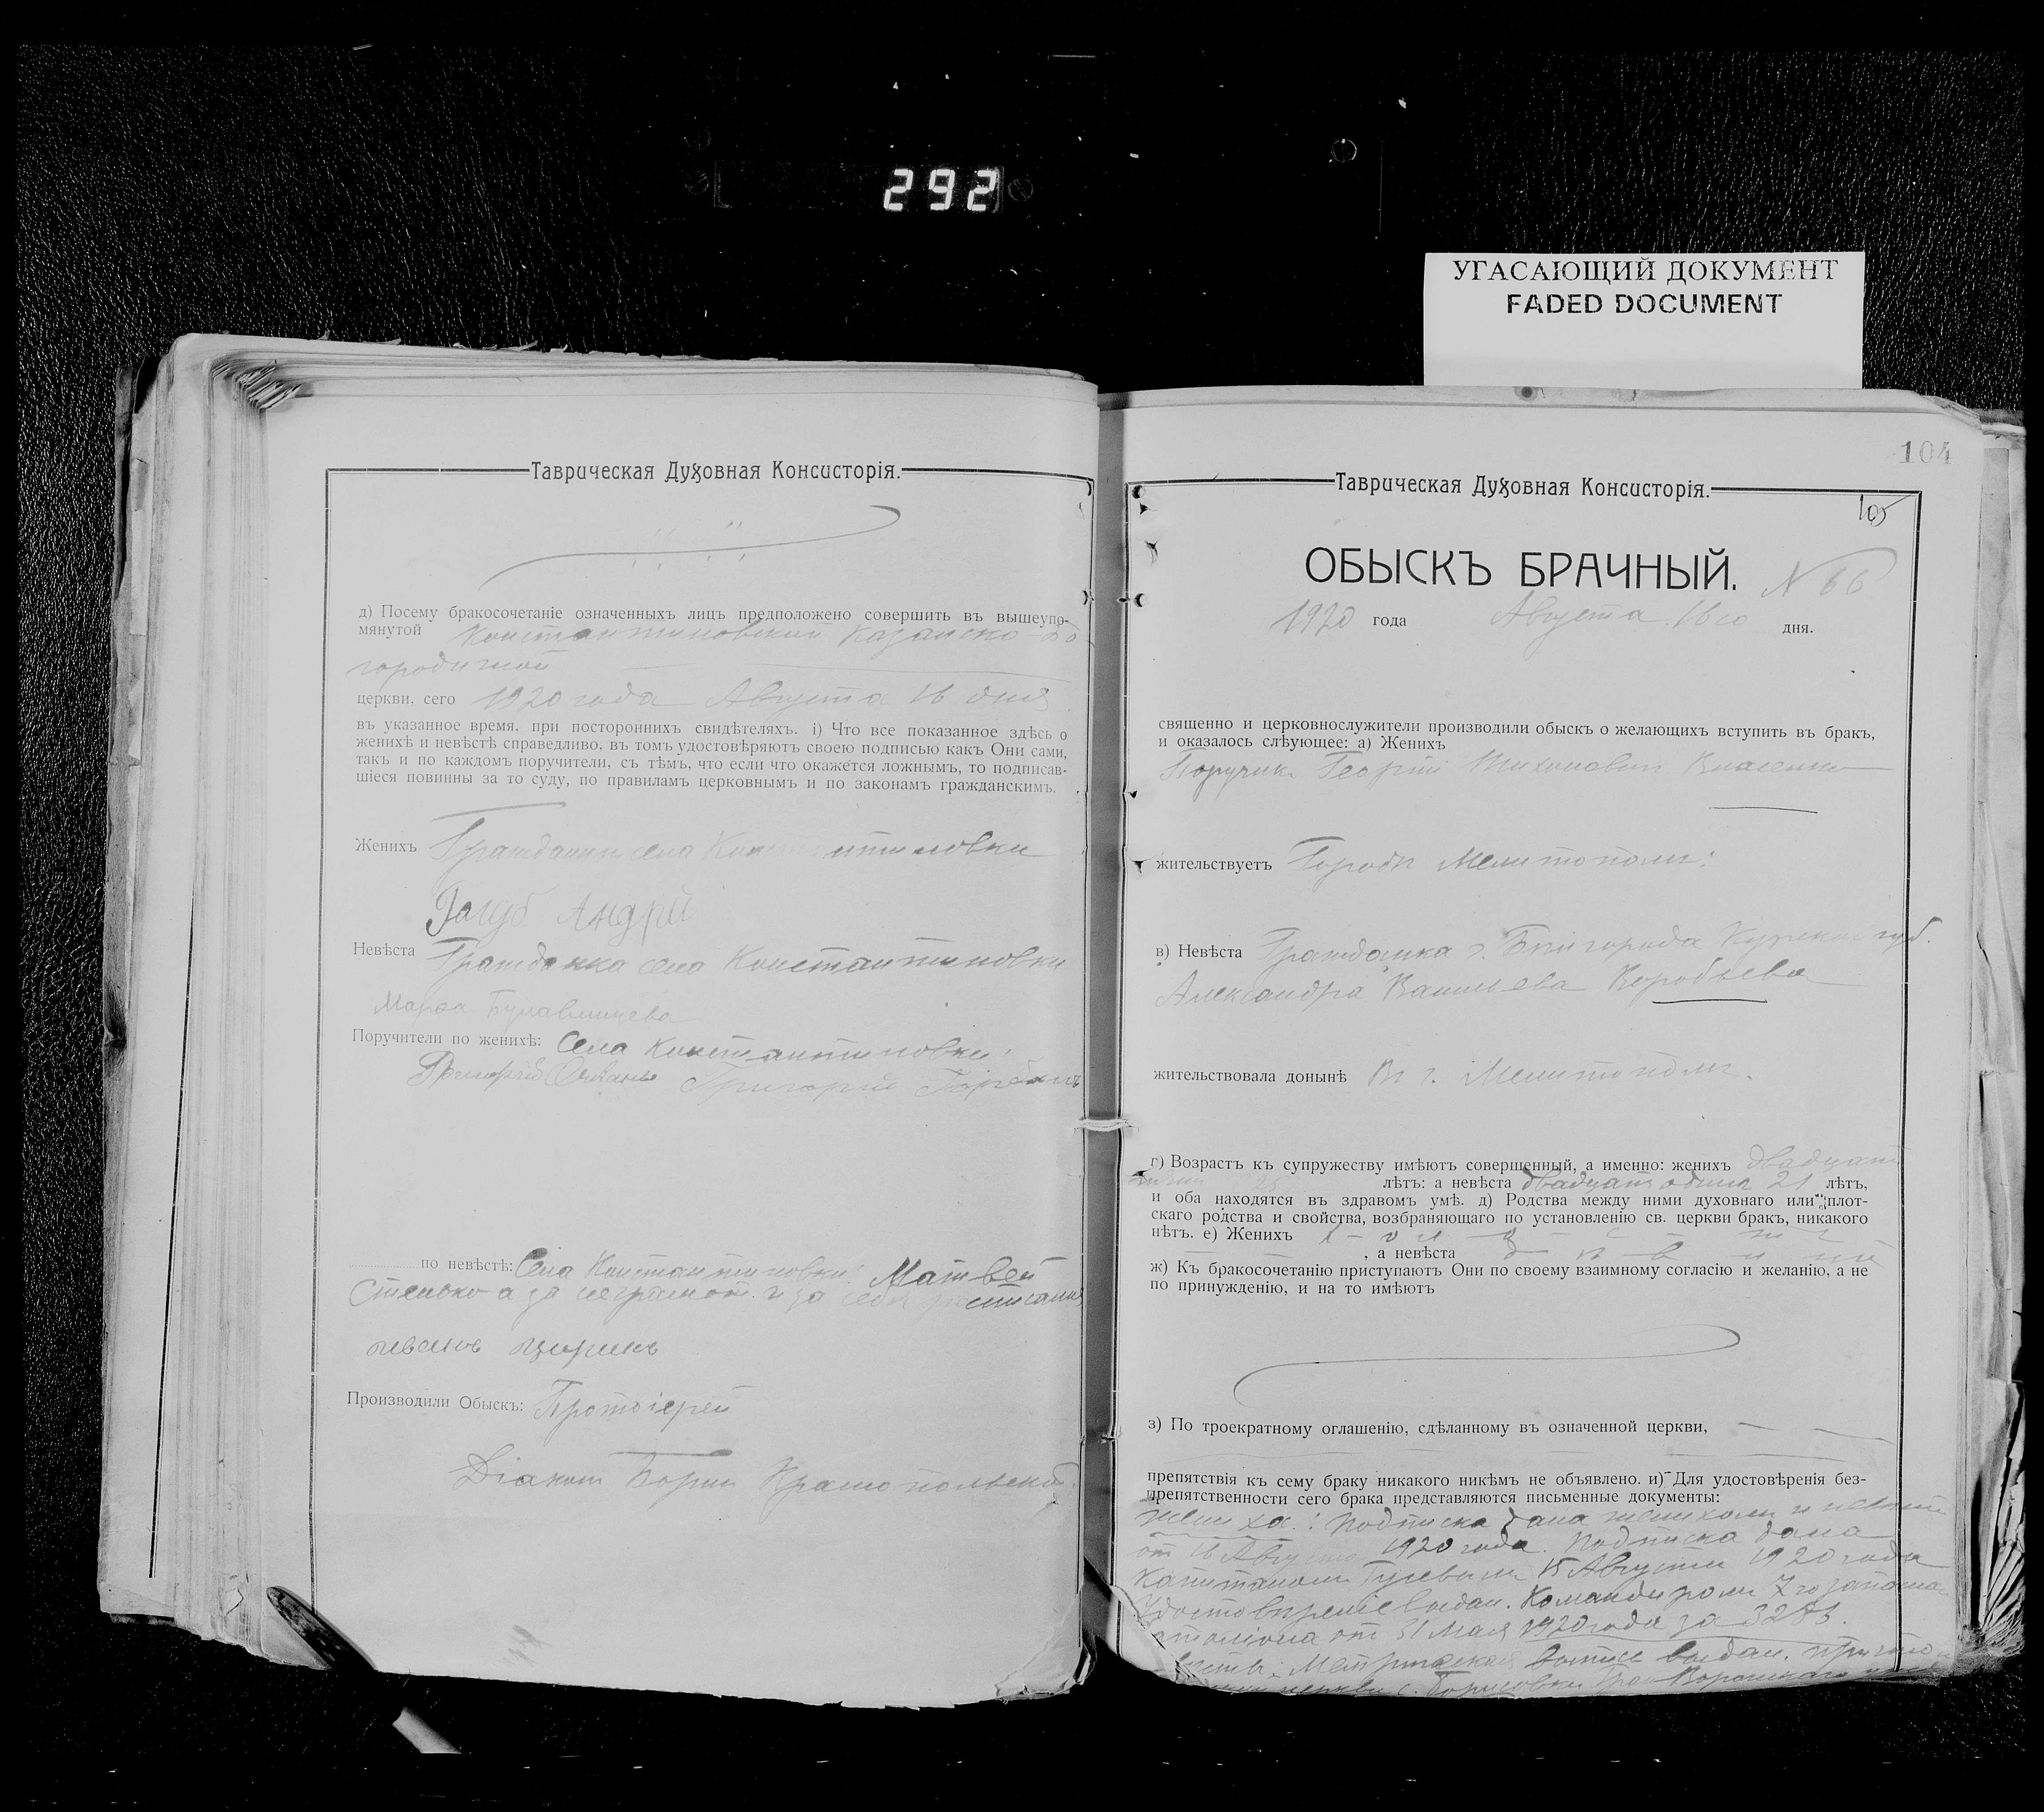 292
УГАСАЮЩИЙ ДОКУМЕНТ
FADED DOCUMENT
Таврическая Духовная Консисторія.
д) Посему бракосочетаніе означенныхъ лицъ предположено совершить въ вышеупо-
мянутой Константиновской Казанско-Бо
городичной
церкви, сего 1920 года Августа 16 дня
въ указанное время, при постороннихъ свидѣтеляхъ. і) Что все показанное здѣсь о
женихѣ и невѣстѣ справедливо, въ томъ удостовѣряютъ своею подписью какъ Они сами,
такъ и по каждомъ поручители, съ тѣмъ, что если что окажется ложнымъ, то подписав-
шіеся повинны за то суду, по правиламъ церковнымъ и по законамъ гражданскимъ.
Женихъ Гражданин села Константиновки
Голуб Андрій
Невѣста Гражданка села Константиновки
Марѳа
Поручители по женихѣ: Села Константиновки:
Григорій
по невѣстѣ: Села Константиновки: Матвей
Стенько а за неграмот. и за себя росписался
Производили Обыскъ: Протоіерей
Діакон Борис Краснопольскій
104
Таврическая Духовная Консисторія.
105
ОБЫСКЪ БРАЧНЫЙ.
N 66
1920 года Августа 16го дня.
священно и церковнослужители производили обыскъ о желающихъ вступить въ бракъ,
и оказалось слѣующее: а) Женихъ
Поручик Георгій Тихонович Власенко
жительствуетъ Город Мелитополь:
в) Невѣста Гражданка г. Бѣлгорода Курской губ.
Александра Васильева Воробьева
жительствовала донынѣ В г. Мелитополь.
г) Возрастъ къ супружеству имѣютъ совершенный, а именно: женихъ двадцать
лѣтъ: а невѣста двадцать один 21 лѣтъ,
и оба находятся въ здравомъ умѣ. д) Родства между ними духовнаго или плот-
скаго родства и свойства, возбраняющаго по установленію св. церкви бракъ, никакого
нѣтъ. е) Женихъ х - о - л - о - с - т
, а невѣста д - ѣ - в - и - ц
ж) Къ бракосочетанію приступаютъ Они по своему взаимному согласію и желанію, а не
по принужденію, и на то имѣютъ
з) По троекратному оглашенію, сдѣланному въ означенной церкви,
препятствія къ сему браку никакого никѣмъ не объявлено. и) Для удостовѣренія без-
препятственности сего брака представляются письменные документы:
жениха: Подписка дана женихом и невѣстой
от 16 Августа 1920 года. Подписка дана
Капитаном Гусевым 15 Августа 1920 года
Удостовѣреніе выдан. Командиром 7го запасн
от 31 Мая 1920 года за
Метрическая выпись выдан. причтом
церкви с. Борисовки